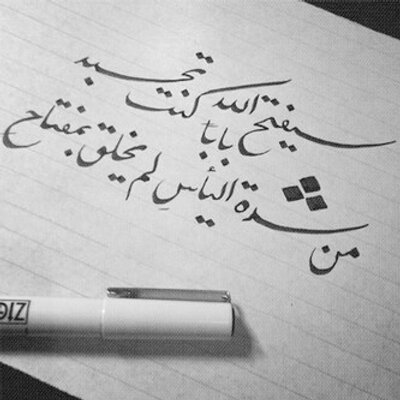 سيفتح الله بابا كنت تحسبه
من شدة اليأس لم يخلق بمفتاح
ZIG